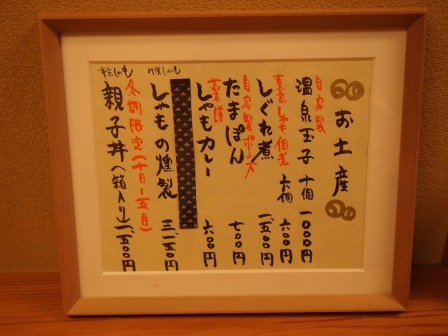 お土産
自家製
温泉玉子 十個 一〇〇〇円
六個 六〇〇円
東京しゃも佃煮
しぐれ煮 一、五〇〇円
自家製ポン酢
たまぽん 七〇〇円
薬膳
しゃもカレー 六〇〇円
しゃもの燻製 三一五〇円
冬期限定(十月~五月)
親子丼(箱入り)一、五〇〇円
東京しゃも